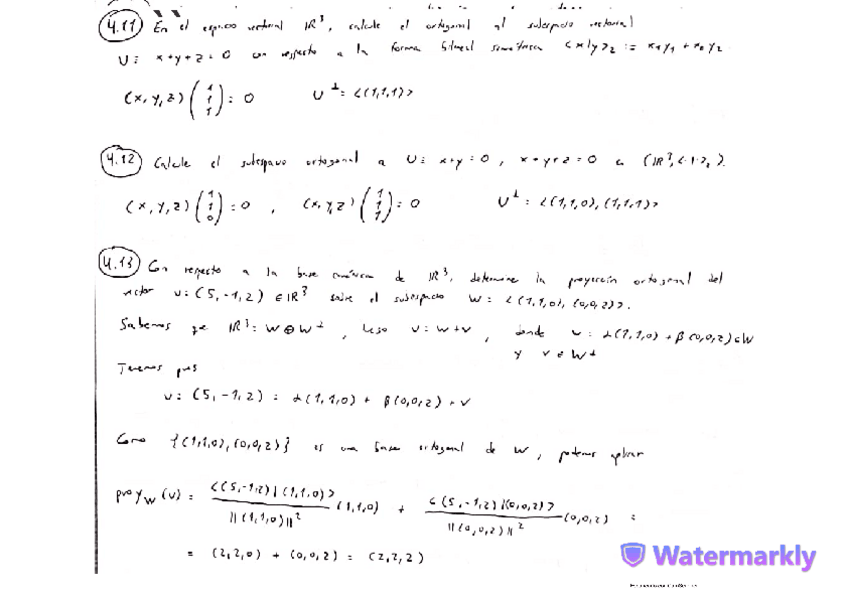 4.11 En el espacio vectorial IR³, calcule el ortogonal al subespacio vectorial
U: x+y+z=0 con respecto a la forma bilineal simétrica <x|y>₂ := x₁y₁ + x₂y₂.
(x, y, z) (1 1 1) = 0 U⊥ = <(1,1,1)>
4.12 Calcule el subespacio ortogonal a U: x+y=0, x+y+z=0 en (IR³, <·|·>₂).
(x, y, z) (1 1 0) = 0, (x, y, z) (1 1 1) = 0 U⊥ = <(1,1,0), (1,1,1)>
4.13 Con respecto a la base canónica de IR³, determine la proyección ortogonal del
vector u=(5,-1,2) ∈ IR³ sobre el subespacio W = <(1,1,0), (0,0,2)>.
Sabemos que IR³ = W ⊕ W⊥, luego u = w+v, donde w = α(1,1,0) + β(0,0,2) ∈ W
y v ∈ W⊥
Tenemos pues
u = (5,-1,2) = α(1,1,0) + β(0,0,2) + v
Como {(1,1,0), (0,0,2)} es una base ortogonal de W, podemos aplicar
proy_W(u) = <(5,-1,2)|(1,1,0)> / ||(1,1,0)||² (1,1,0) + <(5,-1,2)|(0,0,2)> / ||(0,0,2)||² (0,0,2) =
= (2,2,0) + (0,0,2) = (2,2,2)
Watermarkly